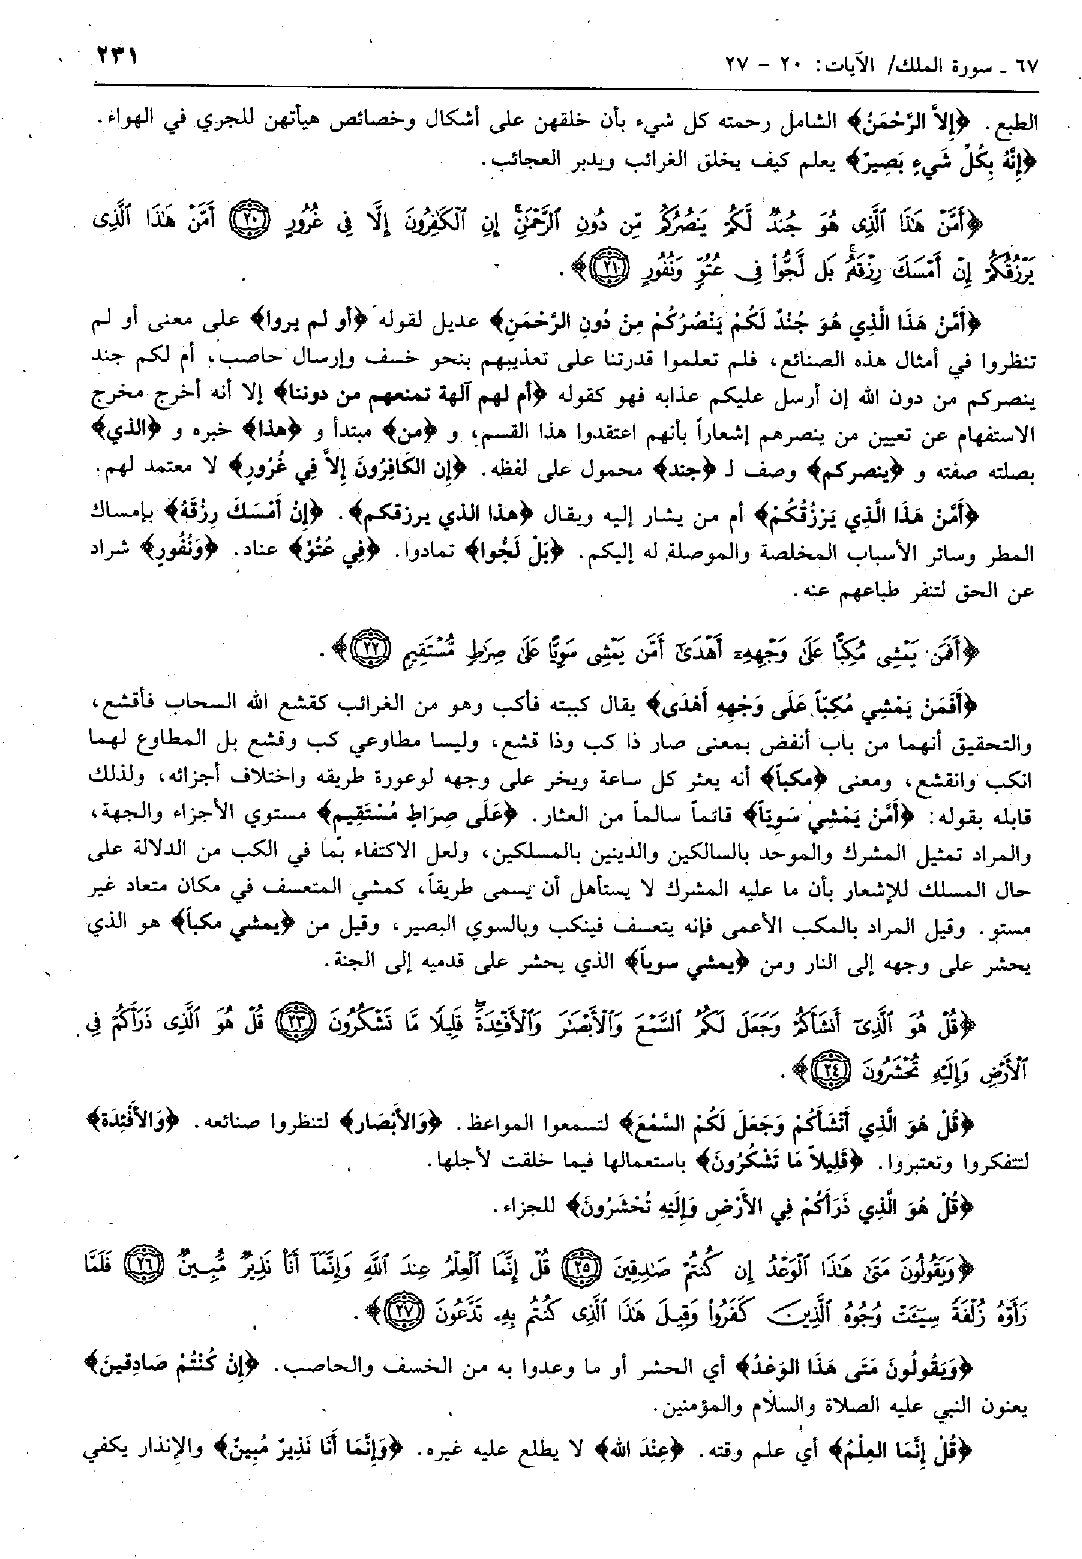 ٦٧ ـ سورة الملك/ الآيات: ٢٠ - ٢٧
٢٣١
الطبع. ﴿إِلاَّ الرَّحْمَنُ﴾ الشامل رحمته كل شيء بأن خلقهن على أشكال وخصائص هيأتهن للجري في الهواء.
﴿إِنَّهُ بِكُلِّ شَيءٍ بَصِيرٌ﴾ يعلم كيف يخلق الغرائب ويدبر العجائب.
﴿أَمَّنْ هَٰذَا ٱلَّذِى هُوَ جُندٌ لَّكُمْ يَنصُرُكُم مِّن دُونِ ٱلرَّحْمَٰنِ إِنِ ٱلْكَٰفِرُونَ إِلَّا فِى غُرُورٍ ﴿٢٠﴾ أَمَّنْ هَٰذَا ٱلَّذِى
يَرْزُقُكُمْ إِنْ أَمْسَكَ رِزْقَهُۥ بَل لَّجُّوا۟ فِى عُتُوٍّ وَنُفُورٍ ﴿٢١﴾﴾.
﴿أَمَّنْ هَذَا الَّذِي هُوَ جُنْدٌ لَكُمْ يَنْصُرُكُمْ مِنْ دُونِ الرَّحْمَنِ﴾ عديل لقوله ﴿أو لم يروا﴾ على معنى أو لم
تنظروا في أمثال هذه الصنائع، فلم تعلموا قدرتنا على تعذيبهم بنحو خسف وإرسال حاصب، أم لكم جند
ينصركم من دون الله إن أرسل عليكم عذابه فهو كقوله ﴿أم لهم آلهة تمنعهم من دوننا﴾ إلا أنه أخرج مخرج
الاستفهام عن تعيين من ينصرهم إشعاراً بأنهم اعتقدوا هذا القسم، و ﴿من﴾ مبتدأ و ﴿هذا﴾ خبره و ﴿الذي﴾
بصلته صفته و ﴿ينصركم﴾ وصف لـ ﴿جند﴾ محمول على لفظه. ﴿إِن الكَافِرُونَ إِلاَّ فِي غُرُورٍ﴾ لا معتمد لهم.
﴿أَمَّنْ هَذَا الَّذِي يَرْزُقُكُمْ﴾ أم من يشار إليه ويقال ﴿هذا الذي يرزقكم﴾. ﴿إِنْ أَمْسَكَ رِزْقَهُ﴾ بإمساك
المطر وسائر الأسباب المخلصة والموصلة له إليكم. ﴿بَلْ لَجُّوا﴾ تمادوا. ﴿فِي عُتُوّ﴾ عناد. ﴿وَنُفُورٍ﴾ شراد
عن الحق لتنفر طباعهم عنه.
﴿أَفَمَن يَمْشِى مُكِبًّا عَلَىٰ وَجْهِهِۦٓ أَهْدَىٰٓ أَمَّن يَمْشِى سَوِيًّا عَلَىٰ صِرَٰطٍ مُّسْتَقِيمٍ ﴿٢٢﴾﴾.
﴿أَفَمَنْ يَمْشِي مُكِبّاً عَلَى وَجْهِهِ أَهْدَى﴾ يقال كببته فأكب وهو من الغرائب كقشع الله السحاب فأقشع،
والتحقيق أنهما من باب أنفض بمعنى صار ذا كب وذا قشع، وليسا مطاوعي كب وقشع بل المطاوع لهما
انكب وانقشع، ومعنى ﴿مكباً﴾ أنه يعثر كل ساعة ويخر على وجهه لوعورة طريقه واختلاف أجزائه، ولذلك
قابله بقوله: ﴿أَمَّنْ يَمْشِي سَوِيّاً﴾ قائماً سالماً من العثار. ﴿عَلَى صِرَاطٍ مُسْتَقِيمٍ﴾ مستوي الأجزاء والجهة،
والمراد تمثيل المشرك والموحد بالسالكين والدينين بالمسلكين، ولعل الاكتفاء بما في الكب من الدلالة على
حال المسلك للإشعار بأن ما عليه المشرك لا يستأهل أن يسمى طريقاً، كمشي المتعسف في مكان متعاد غير
مستو. وقيل المراد بالمكب الأعمى فإنه يتعسف فينكب وبالسوي البصير، وقيل من ﴿يمشي مكباً﴾ هو الذي
يحشر على وجهه إلى النار ومن ﴿يمشي سوياً﴾ الذي يحشر على قدميه إلى الجنة.
﴿قُلْ هُوَ ٱلَّذِىٓ أَنشَأَكُمْ وَجَعَلَ لَكُمُ ٱلسَّمْعَ وَٱلْأَبْصَٰرَ وَٱلْأَفْـِٔدَةَ قَلِيلًا مَّا تَشْكُرُونَ ﴿٢٣﴾ قُلْ هُوَ ٱلَّذِى ذَرَأَكُمْ فِى
ٱلْأَرْضِ وَإِلَيْهِ تُحْشَرُونَ ﴿٢٤﴾﴾.
﴿قُلْ هُوَ الَّذِي أَنْشَأَكُمْ وَجَعَلَ لَكُمْ السَّمْعَ﴾ لتسمعوا المواعظ. ﴿وَالأَبْصَار﴾ لتنظروا صنائعه. ﴿وَالأَفْئِدَة﴾
لتتفكروا وتعتبروا. ﴿قَلِيلاً مَا تَشْكُرُونَ﴾ باستعمالها فيما خلقت لأجلها.
﴿قُلْ هُوَ الَّذِي ذَرَأَكُمْ فِي الأَرْضِ وَإِلَيْهِ تُحْشَرُونَ﴾ للجزاء.
﴿وَيَقُولُونَ مَتَىٰ هَٰذَا ٱلْوَعْدُ إِن كُنتُمْ صَٰدِقِينَ ﴿٢٥﴾ قُلْ إِنَّمَا ٱلْعِلْمُ عِندَ ٱللَّهِ وَإِنَّمَآ أَنَا۠ نَذِيرٌ مُّبِينٌ ﴿٢٦﴾ فَلَمَّا
رَأَوْهُ زُلْفَةً سِيٓـَٔتْ وُجُوهُ ٱلَّذِينَ كَفَرُوا۟ وَقِيلَ هَٰذَا ٱلَّذِى كُنتُم بِهِۦ تَدَّعُونَ ﴿٢٧﴾﴾.
﴿وَيَقُولُونَ مَتَى هَذَا الوَعْدُ﴾ أي الحشر أو ما وعدوا به من الخسف والحاصب. ﴿إِنْ كُنْتُمْ صَادِقِينَ﴾
يعنون النبي عليه الصلاة والسلام والمؤمنين.
﴿قُلْ إِنَّمَا العِلْمُ﴾ أي علم وقته. ﴿عِنْدَ الله﴾ لا يطلع عليه غيره. ﴿وَإِنَّمَا أَنَا نَذِيرٌ مُبِينٌ﴾ والإِنذار يكفي